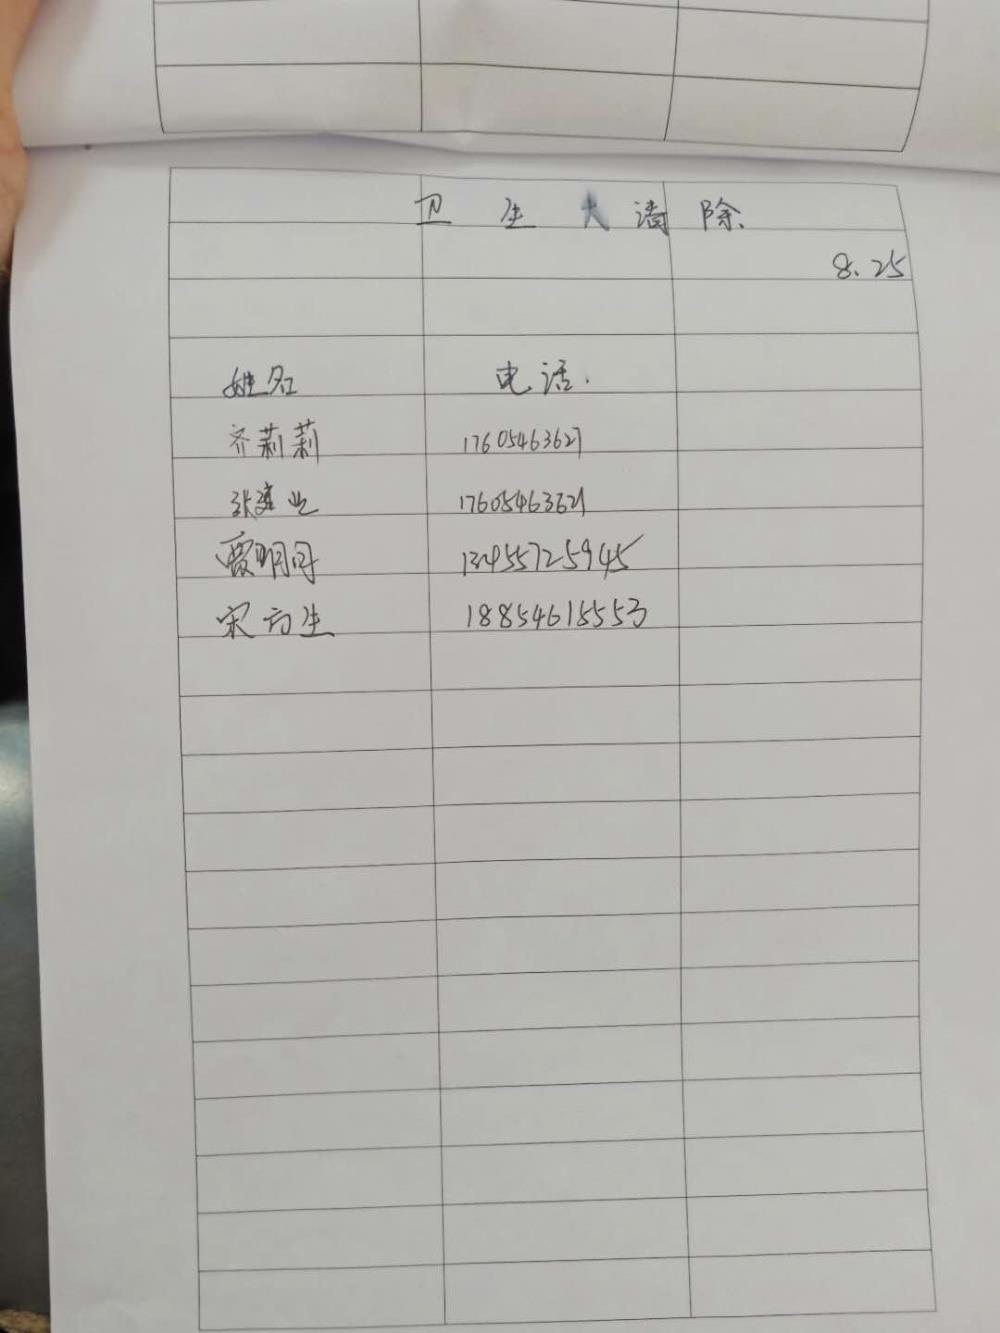 卫生大清除
8.25
姓名 电话.
齐莉莉 17605463627
张建业 17605463621
贾明月 13455725945
宋方生 18854615553